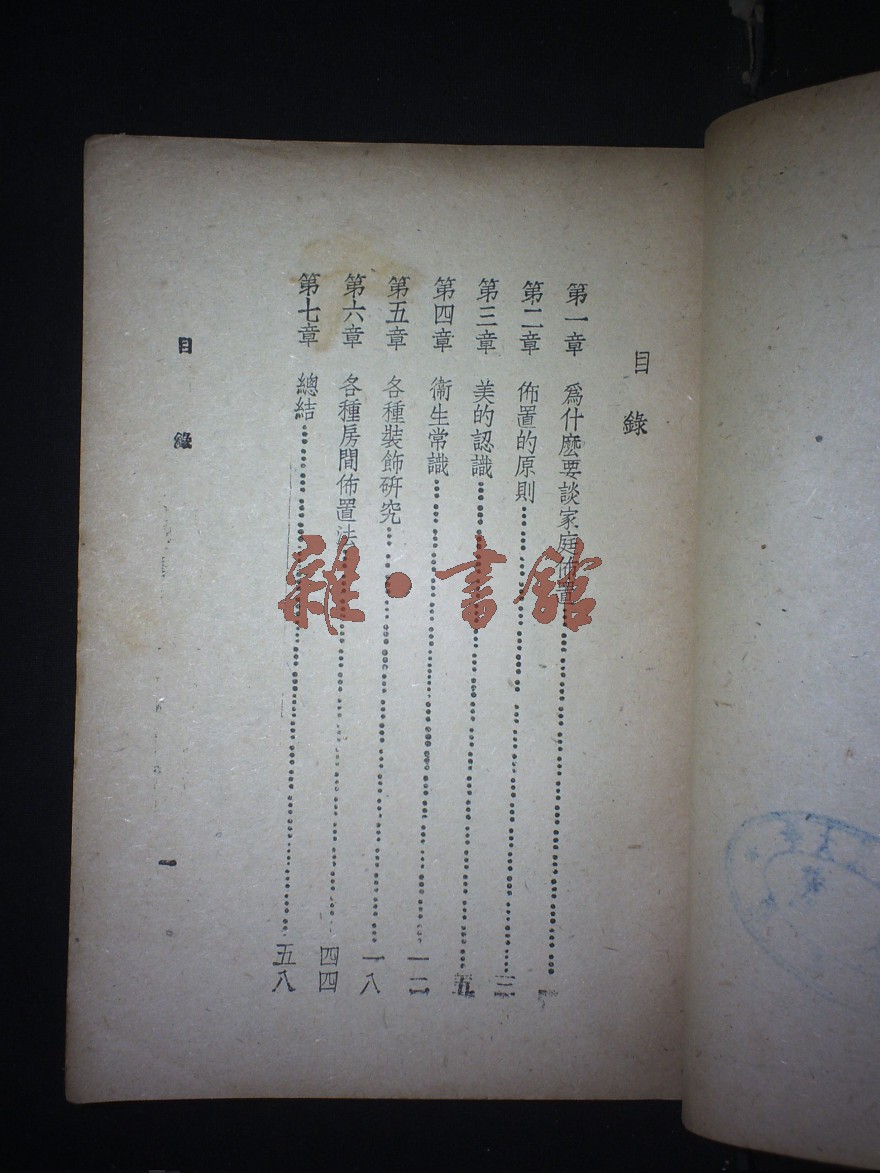 目錄
第一章 爲什麽要談家庭佈置
第二章 佈置的原則 三
第三章 美的認識 五
第四章 衞生常識 一二
第五章 各種裝飾研究 一八
第六章 各種房間佈置法 四四
第七章 總結 五八
目錄 一
雜·書館